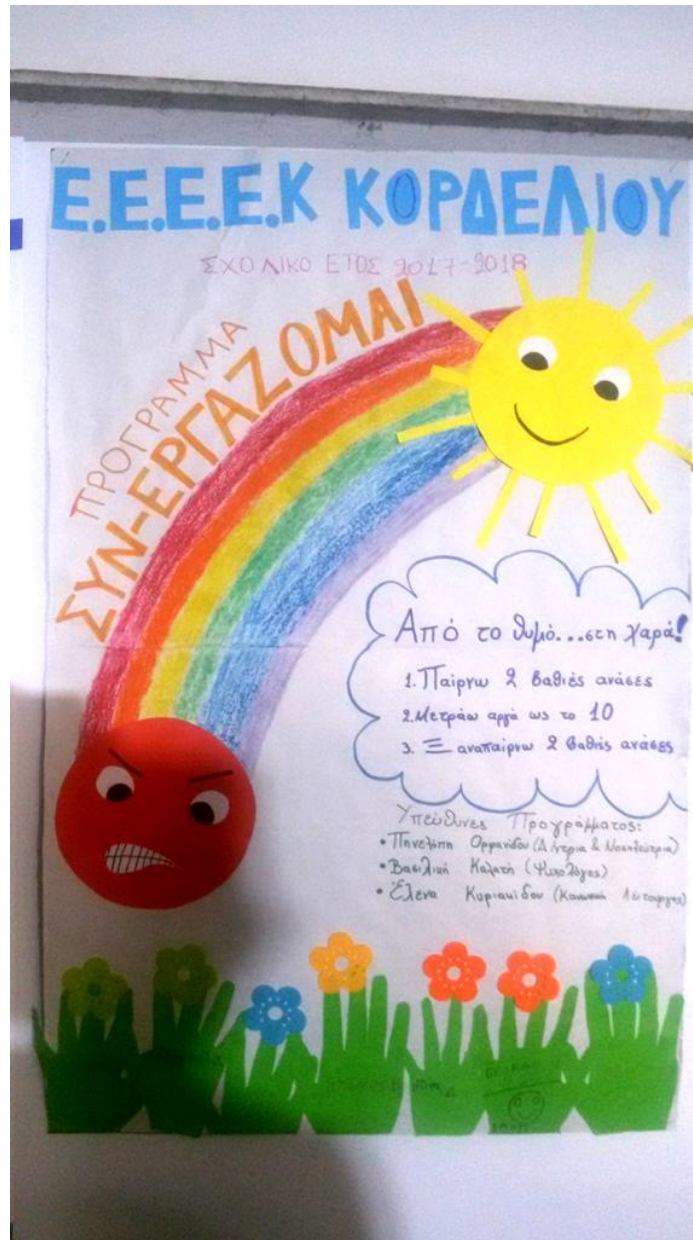 Ε.Ε.Ε.Ε.Κ ΚΟΡΔΕΛΙΟΥ
ΣΧΟΛΙΚΟ ΕΤΟΣ 2017-2018
ΠΡΟΓΡΑΜΜΑ
ΣΥΝ-ΕΡΓΑΖΟΜΑΙ
Από το θυμό...στη χαρά!
1. Παίρνω 2 βαθιές ανάσες
2. Μετράω αργά ως το 10
3. Ξαναπαίρνω 2 βαθιές ανάσες
Υπεύθυνες Προγράμματος:
• Πηνελόπη Ορφανίδου (Δ/ντρια & Νοσηλεύτρια)
• Βασιλική (Ψυχολόγος)
• Έλενα Κυριακίδου (Κοινωνική Λειτουργός)